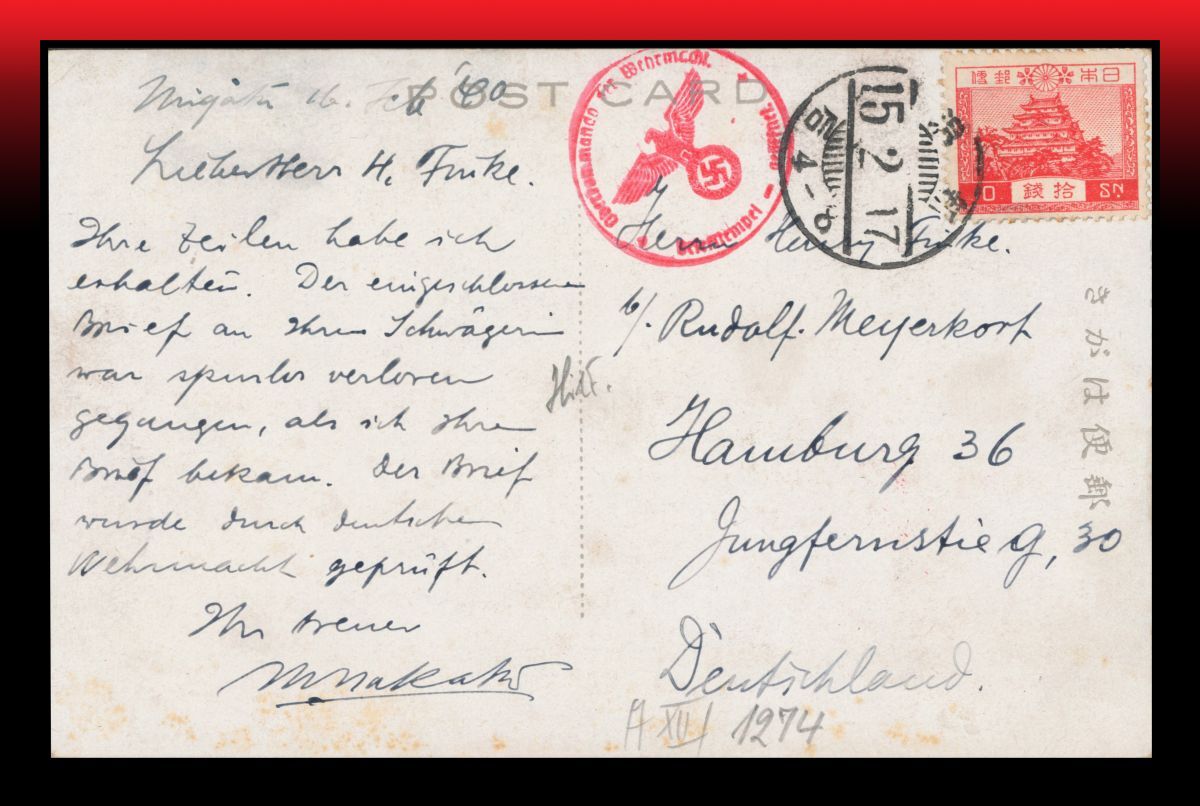 POST CARD
Niigata 16. Feb '40
Lieber Herr H. Finke.
Ihre Zeilen habe ich
erhalten. Der eingeschlossene
Brief an Ihre Schwägerin
war spurlos verloren
gegangen, als ich Ihre
Brief bekam. Der Brief
wurde durch deutschen
Wehrmacht geprüft.
Ihr treuer
Oberkommando der Wehrmacht
15.2.17
4-6
日本郵便
10 拾錢 SN
Herrn Henry Finke.
b/. Rudolf Meyerkort
Hamburg 36
Jungfernstieg, 30
Deutschland.
A XVI 1274
きがは便郵